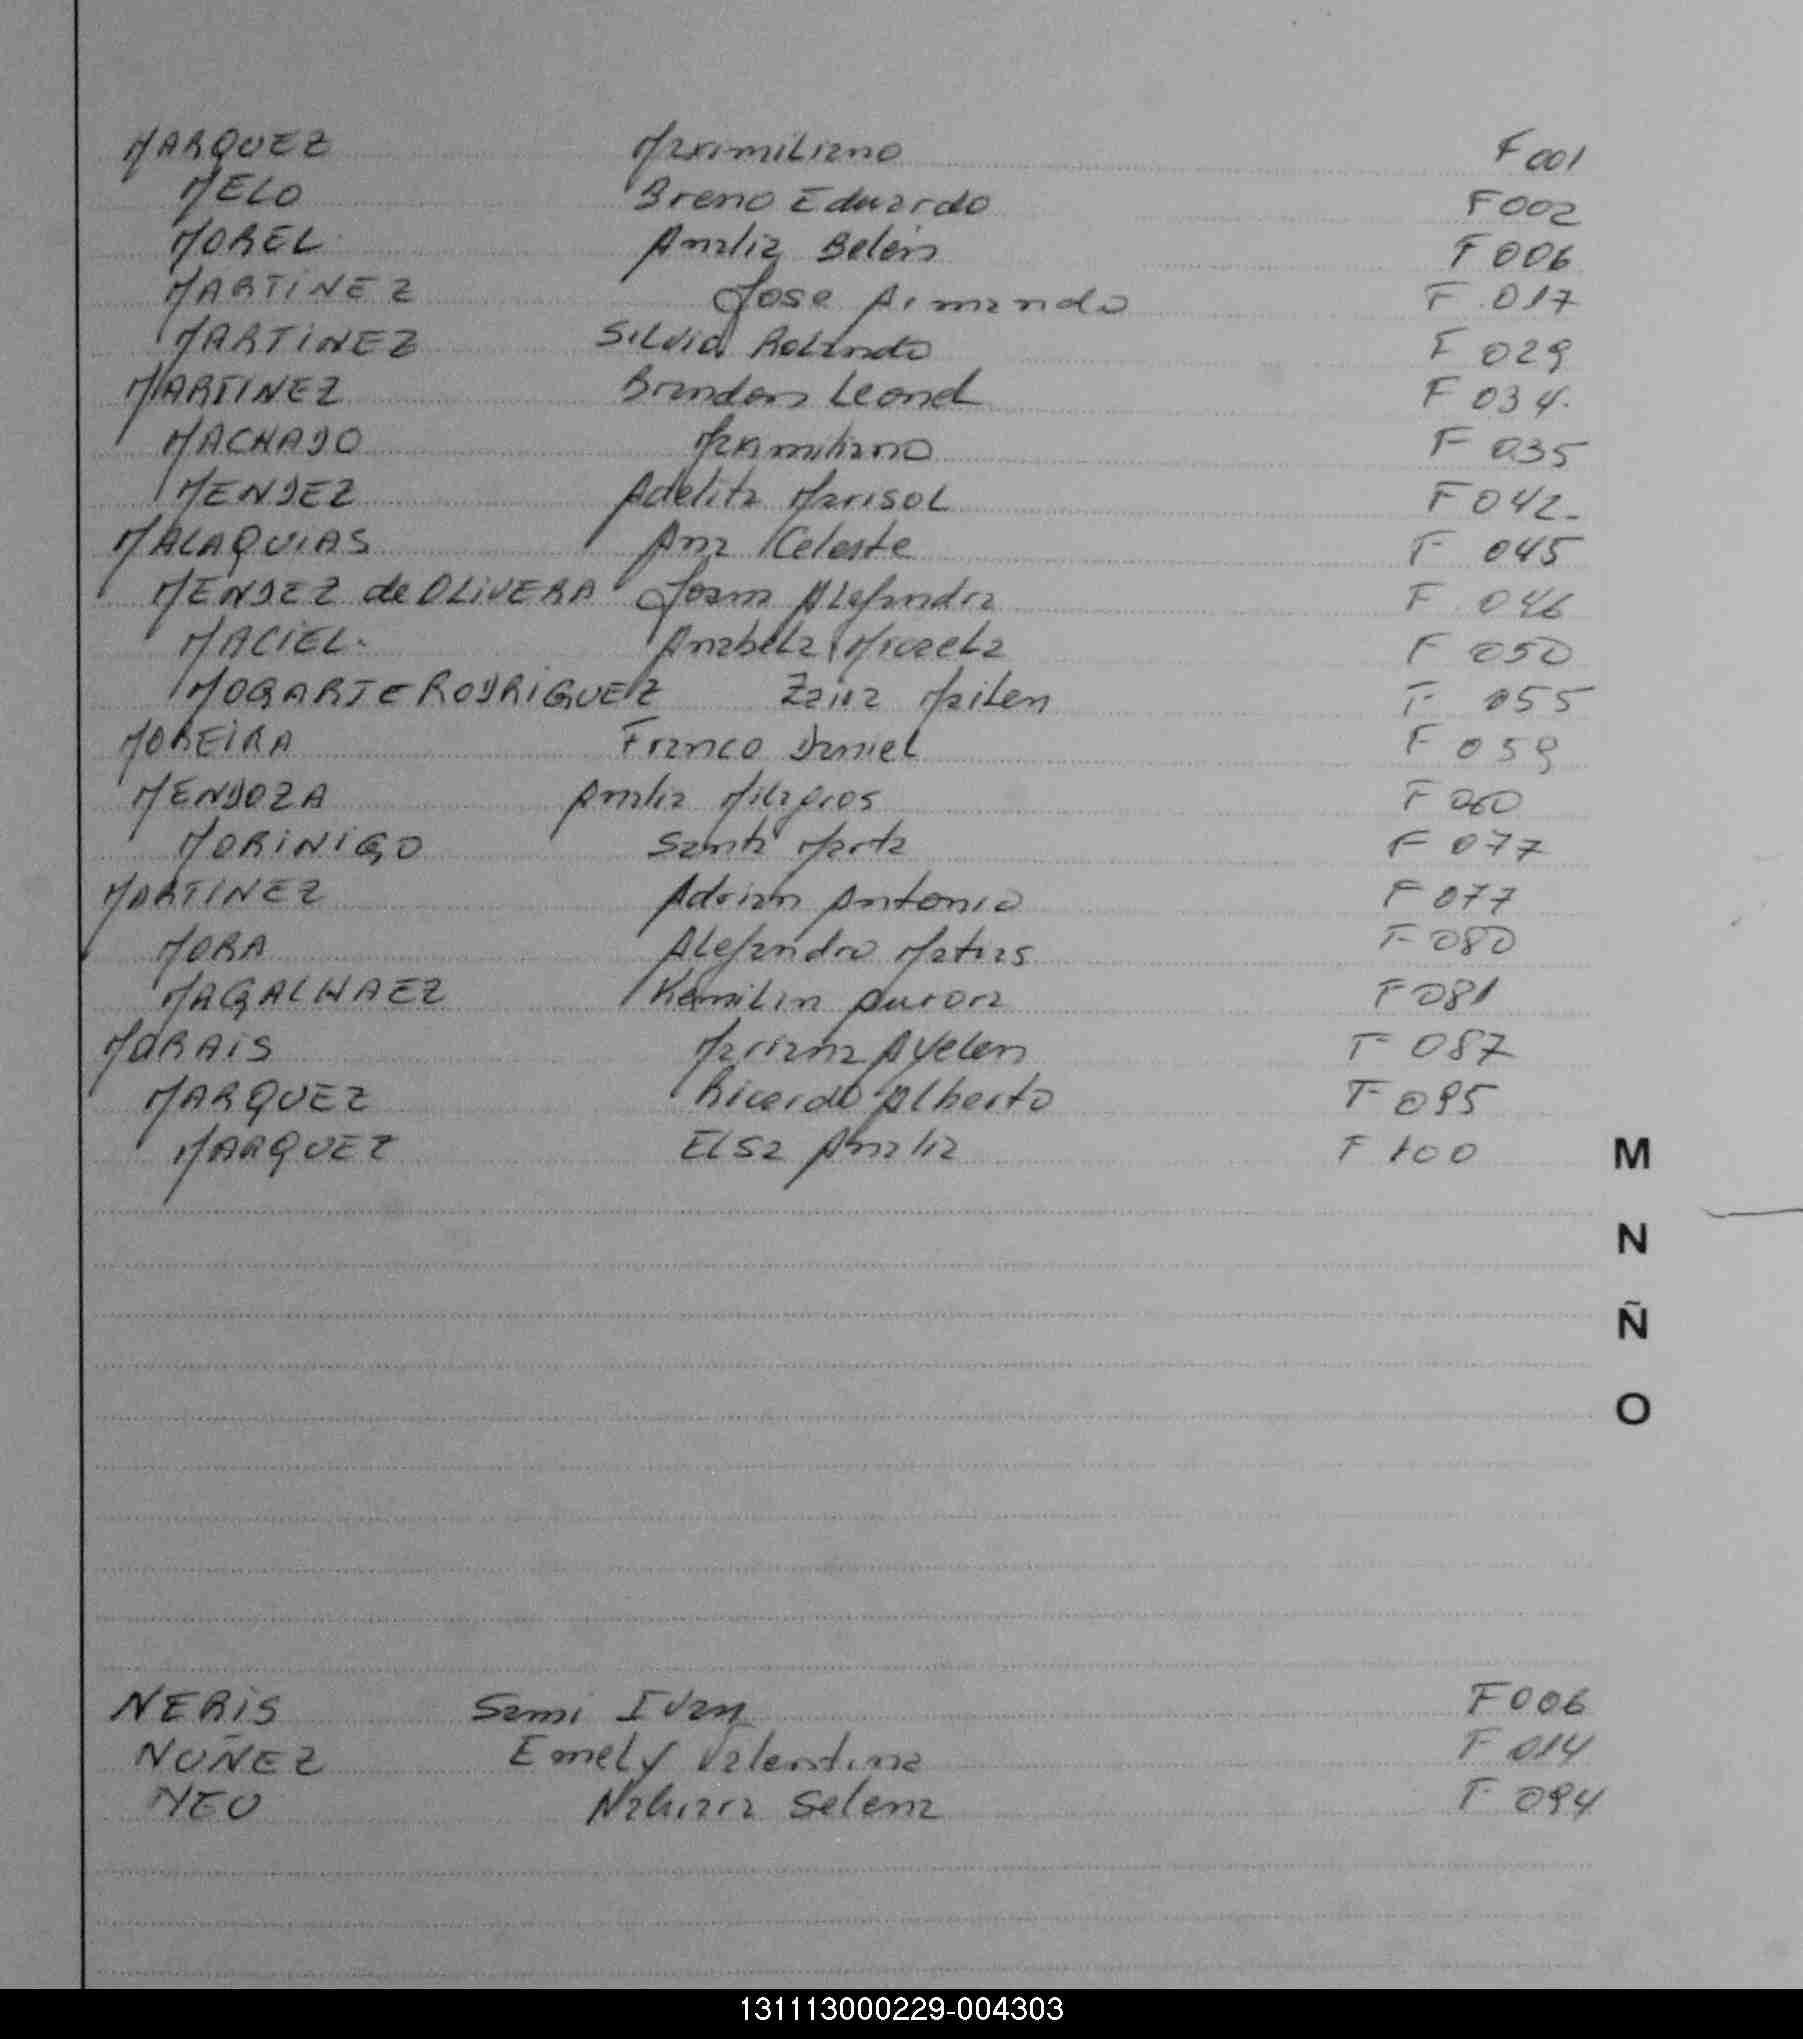 MARQUEZ Maximiliano F 001
MELO Breno Eduardo F 002
MOREL Analia Belén F 006
MARTINEZ Jose Armando F 017
MARTINEZ Silvio Rolando F 029
MARTINEZ Brandon Leonel F 034.
MACHADO Maximiliano F 035
MENDEZ Adelita Marisol F 042-
MALAQUIAS Ana Celeste F 045
MENDEZ de OLIVERA Joana Alejandra F 046
MACIEL- Anabela Micaela F 050
RODRIGUEZ Mailen F 055
MOREIRA Franco Daniel F 059
MENDOZA Analia Milagros F 060
MORINIGO Santa Marta F 077
MARTINEZ Adrian Antonio F 077
MORA Alejandro Matias F 080
MAGALHAEZ Kemilin Aurora F 081
MORAIS Mariana Ayelen F 087
MARQUEZ Ricardo Alberto F 095
MARQUEZ Elsa Analia F 100
M
N
Ñ
O
NERIS Sami Ivan F 006
NUÑEZ Emely Valentina F 014
NEU Nahiara Selena F 094
131113000229-004303